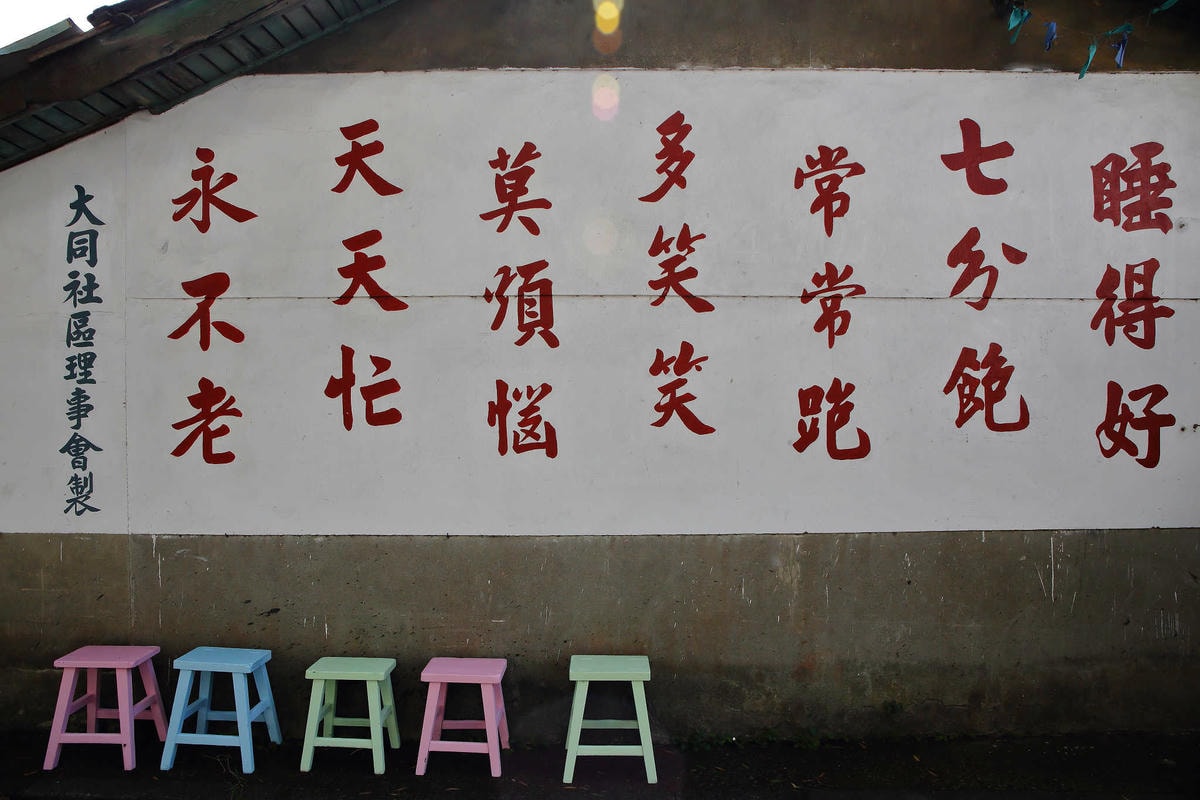 睡得好
七分飽
常常跑
多笑笑
莫煩惱
天天忙
永不老
大同社區理事會製